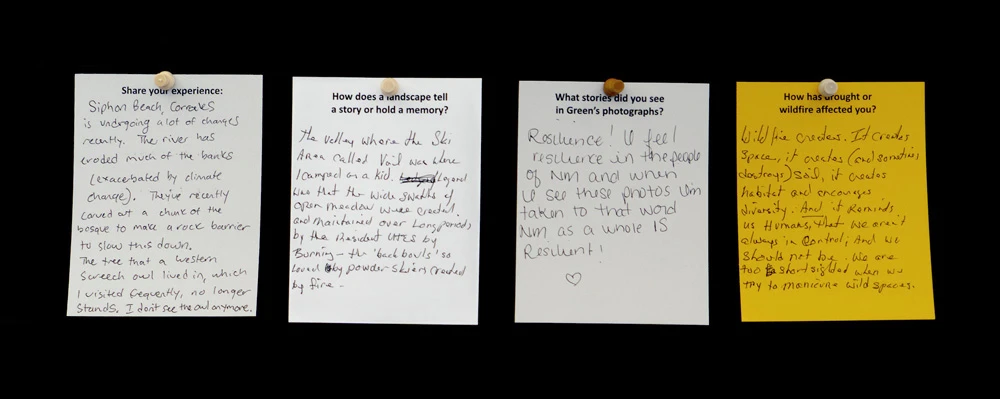 Share your experience:
Siphon Beach, Corrales
is undergoing a lot of changes
recently. The river has
eroded much of the banks
(exacerbated by climate
change). They've recently
carved out a chunk of the
bosque to make a rock barrier
to slow this down.
The tree that a western
Screech owl lived in, which
I visited frequently, no longer
stands. I don't see the owl anymore.
How does a landscape tell
a story or hold a memory?
the valley where the Ski
Area called Vail was where
I camped as a kid. Legend
was that the wide swaths of
open meadow were created
and maintained over long periods,
by the resident UTES by
Burning – the 'back bowls' so
loved by powder skiers created
by fire –
What stories did you see
in Green's photographs?
Resilience! I feel
resilience in the people
of NM and when
I see these photos I'm
taken to that word
NM as a whole IS
Resilient!
♡
How has drought or
wildfire affected you?
Wildfire creates. It creates
space, it creates (and sometimes
destroys) soil, it creates
habitat and encourages
diversity. And it reminds
us Humans, that we aren't
always in control; And we
should not be. We are
too shortsighted when we
try to manicure wild spaces.